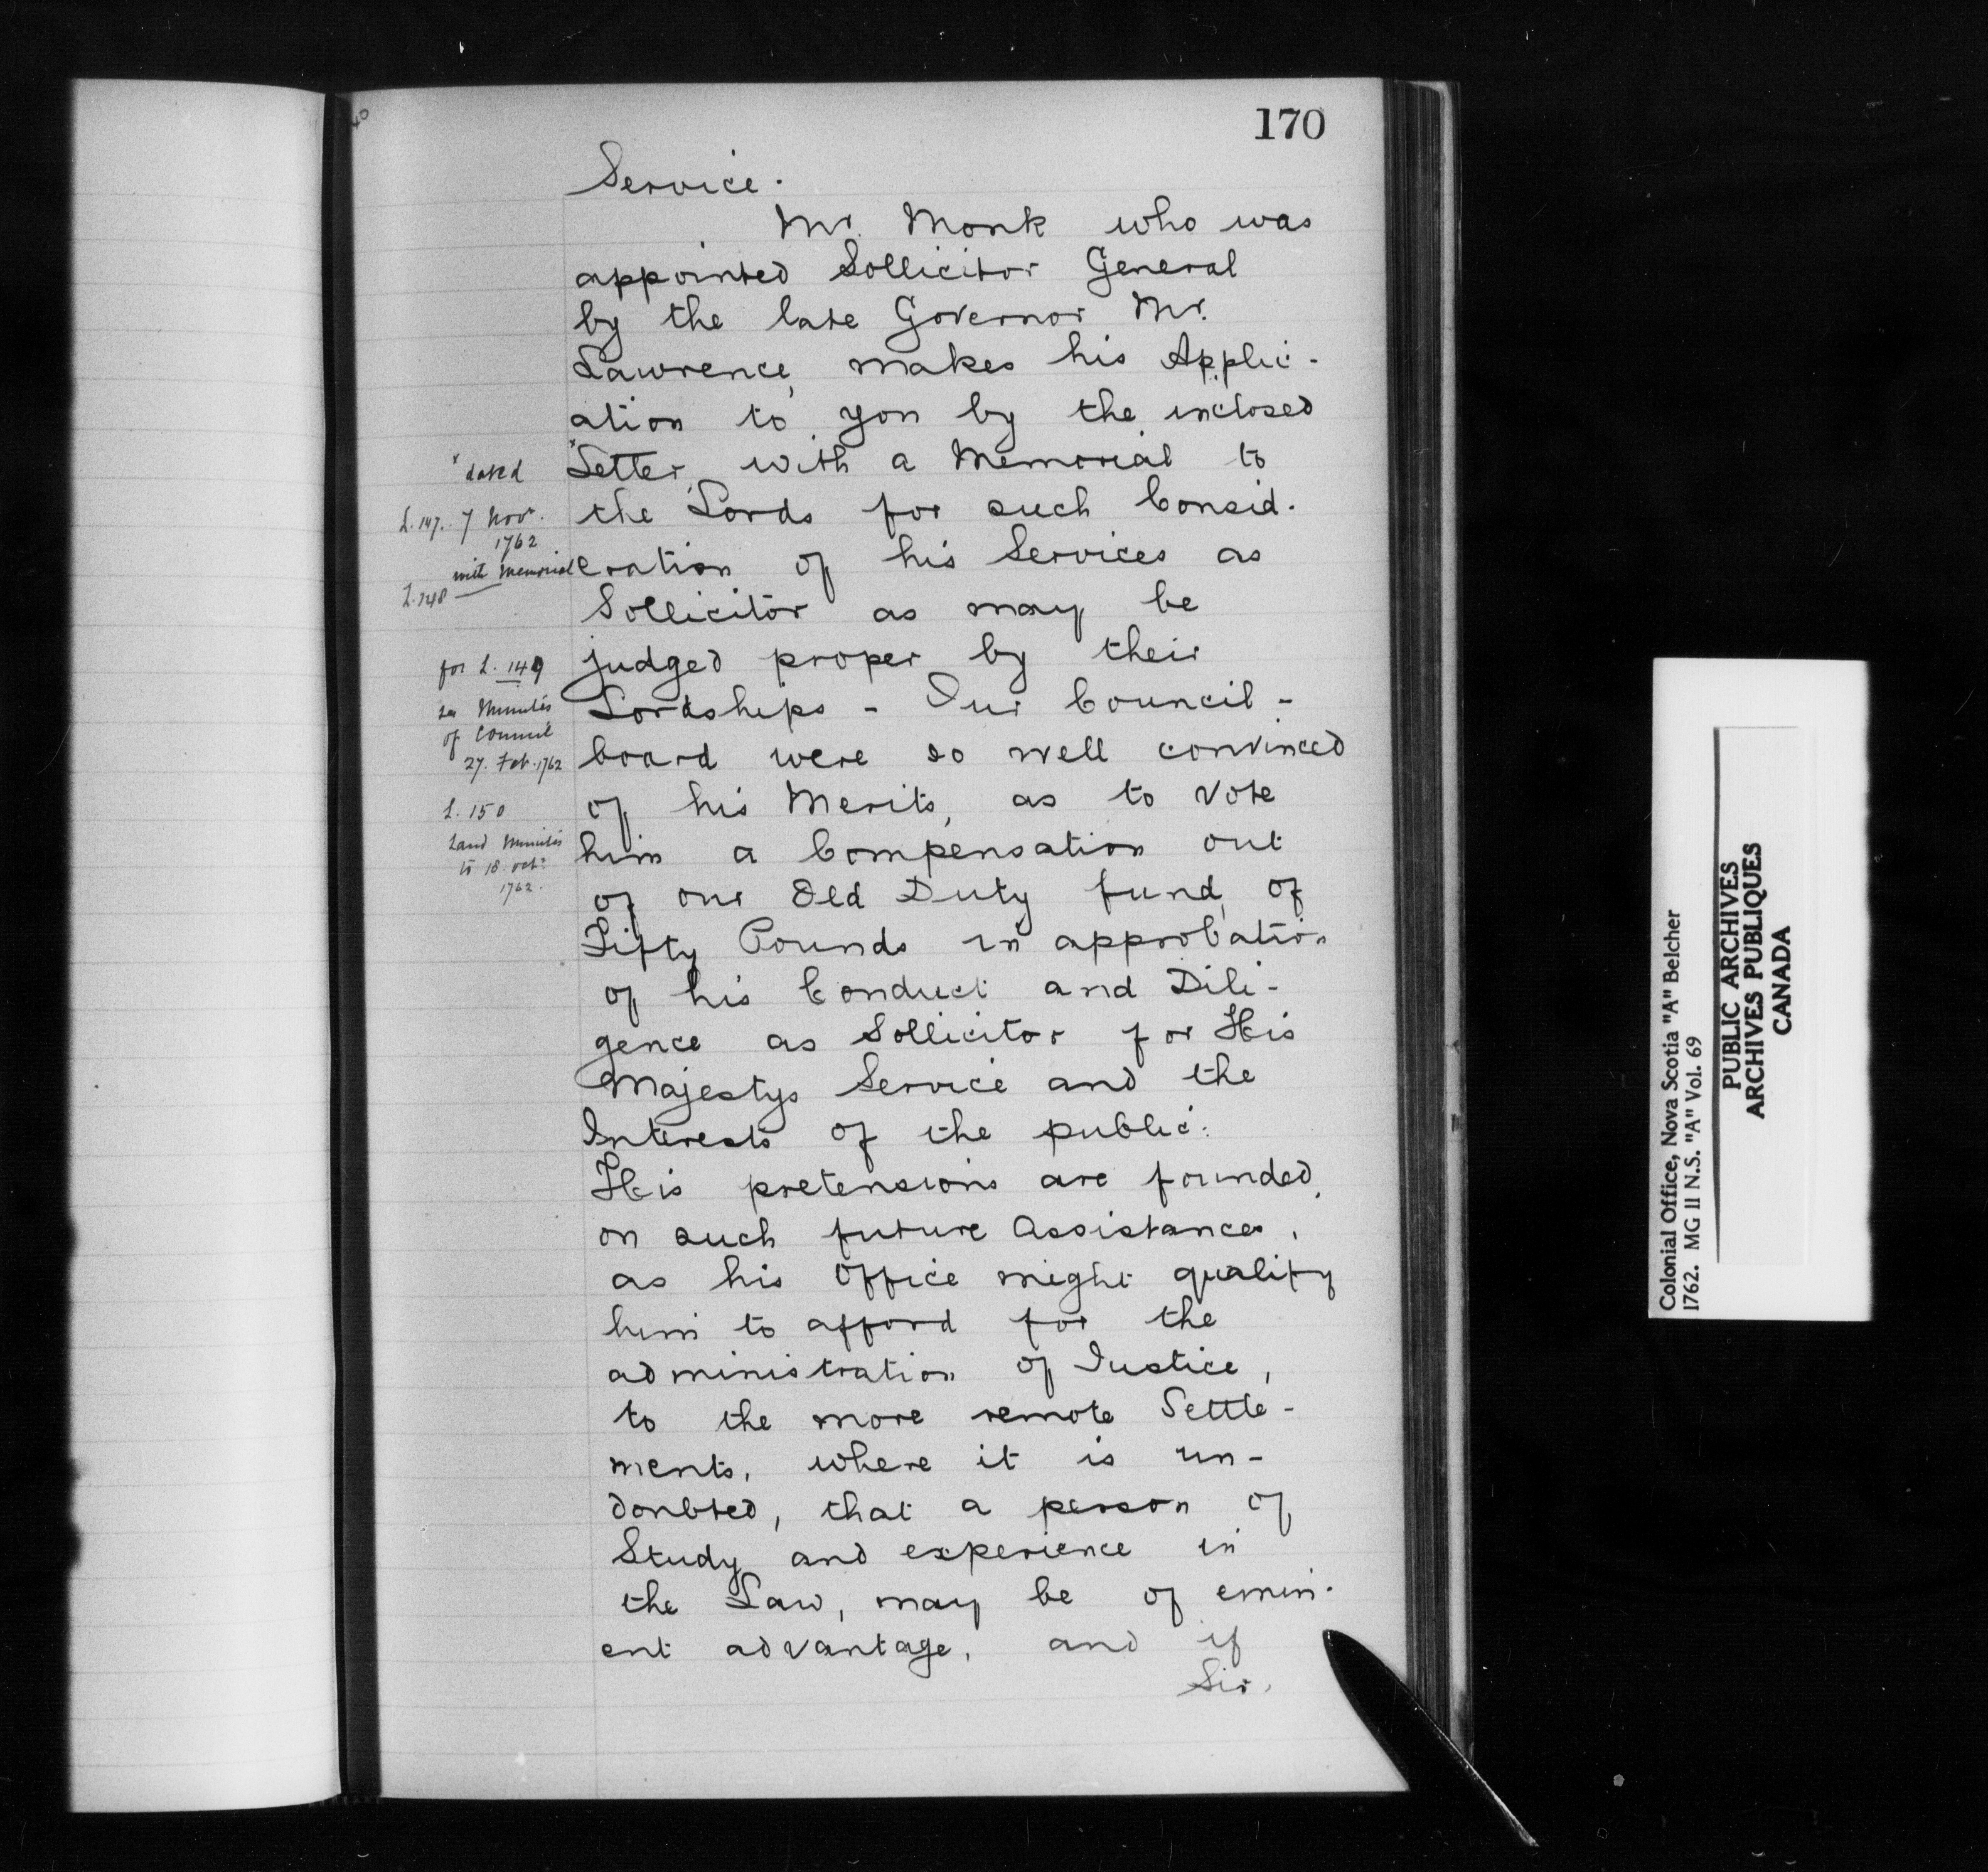 40
170
Service.
Mr. Monk who was
appointed Sollicitor General
by the late Governor Mr.
Lawrence, makes his Applic-
ation to you by the inclosed
x Letter, with a Memorial to
the Lords for such Consid-
eration of his Services as
Sollicitor as may be
judged proper by their
Lordships - Our Council-
board were so well convinced
of his Merits, as to Vote
him a Compensation out
of our Old Duty fund, of
Fifty Pounds in approbation
of his Conduct and Dili-
gence as Sollicitor for His
Majestys Service and the
Interests of the public:
His pretensions are founded,
on such future Assistances,
as his Office might qualify
him to afford for the
administration of Justice,
to the more remote Settle-
ments, where it is un-
doubted, that a person of
Study and experience in
the Law, may be of emin-
ent advantage, and if
Sir,
x dated
L. 147. 7 Novr.
1762
with Memorial
L. 148
for L. 149
see Minutes
of Council
27. Feb. 1762
L. 150
Land Minutes
to 18. Octr.
1762.
Colonial Office, Nova Scotia "A" Belcher
1762. MG II N.S. "A" Vol. 69
PUBLIC ARCHIVES
ARCHIVES PUBLIQUES
CANADA